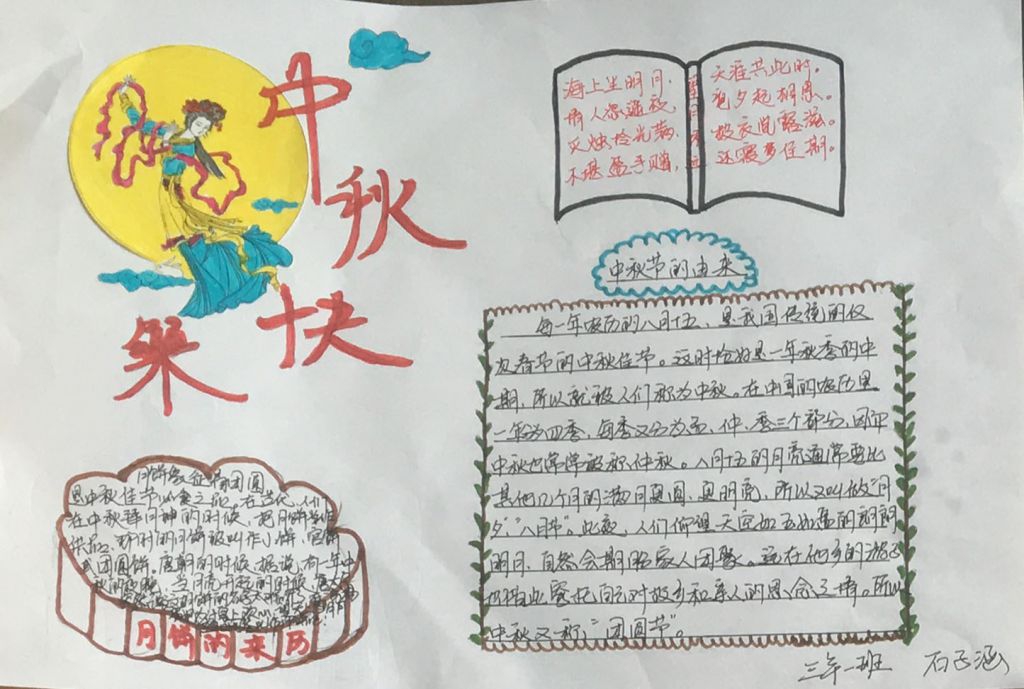 中秋
快
樂
海上生明月，天涯共此时。
情人怨遥夜，竟夕起相思。
灭烛怜光满，披衣觉露滋。
不堪盈手赠，还寝梦佳期。
中秋节的由来
每一年农历的八月十五，是我国传统的仅
次春节的中秋佳节。这时恰好是一年秋季的中
期，所以就被人们称为中秋。在中国的农历里
一年分为四季，每季又分为孟、仲、季三个部分，因而
中秋也常常被称仲秋。八月十五的月亮通常要比
其他几个月的满月更圆，更明亮，所以又叫做“月
夕”，“八月节”。此夜，人们仰望天空如玉如盘的朗朗
明月，自然会期盼家人团聚。远在他乡的游子
也借此寄托自己对故乡和亲人的思念之情。所以
中秋又称“团圆节”。
月饼象征着团圆
是中秋佳节必食之
在中秋拜月神的时候，把月饼
供品，那时的月饼被叫作小饼、宫饼
或团圆饼。唐朝的时候，据说，有一年中
月饼的来历
三年一班 石子涵